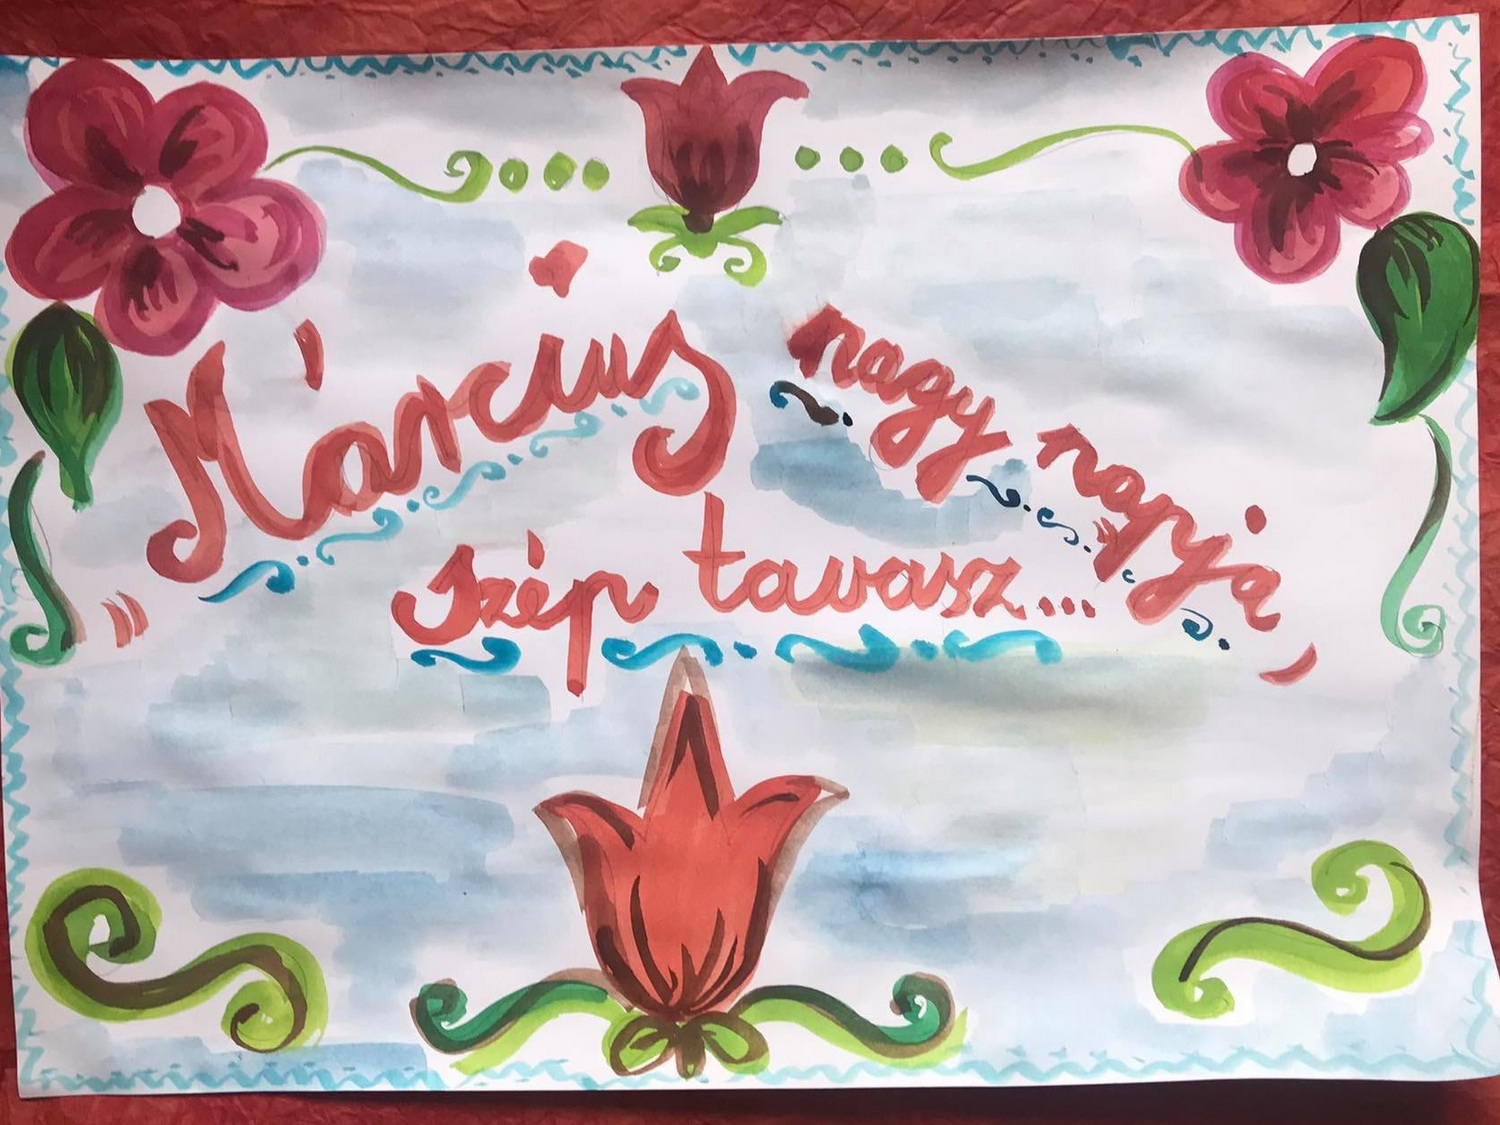 "Március nagy napja,
szép tavasz...